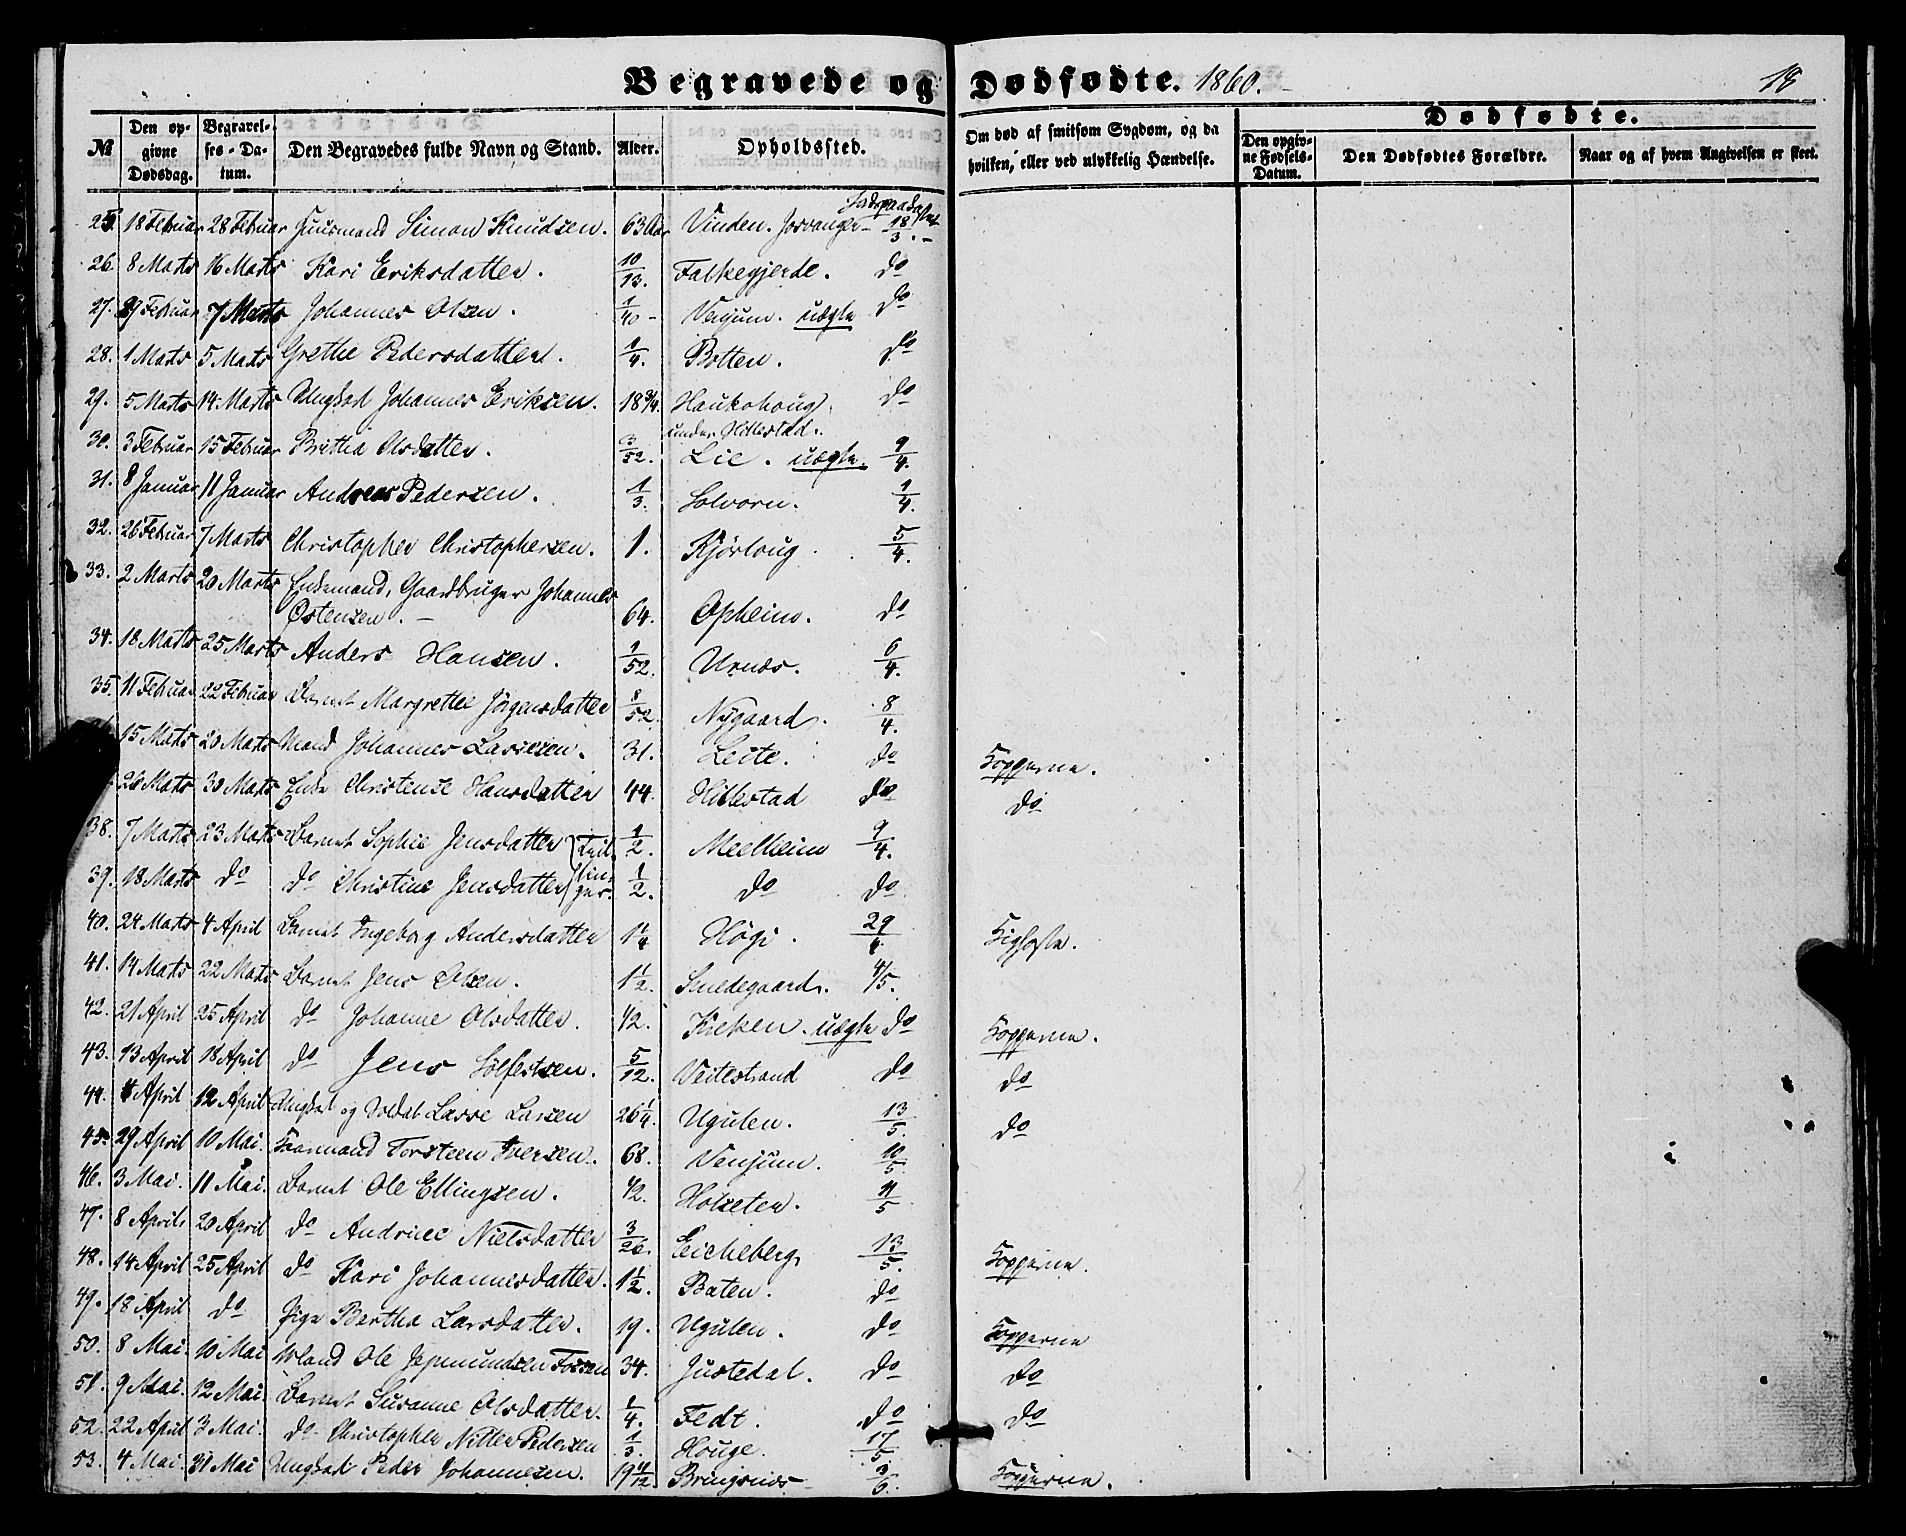 Begravede og Dødfødte. 1860. 18
№ Den opgivne Dødsdag. Begravelses-Datum. Den Begravedes fulde Navn og Stand. Alder. Opholdssted. Om død af smitsom Sygdom, og da hvilken, eller ved ulykkelig Hændelse. Dødfødte.
Den opgivne Fødsels-Datum. Den Dødfødtes Forældre. Naar og af hvem Angivelsen er skeet.
Jordpaakastet
25 18 Februar 28 Februar Huusmand Simon Knudsen. 63 Aar Vinden. Josvanger 18/3.
26. 8 Marts 16 Marts Kari Eriksdatter. 10/13. Falkegjerde. do
27. 29 Februar 7 Marts Johannes Olsen. 1/40 Venjum. uægte do
28. 1 Marts 5 Marts Grethe Pedersdatter. 1/4. Botten. do
29. 5 Marts 14 Marts Ungkarl Johannes Eriksen. 18 3/4. Haukohoug. do
under Hillestad.
30. 3 Februar 15 Februar Brithа Olsdatter. 3/52. Lie. uægte. 9/4.
31. 8 Januar 11 Januar Andreas Pedersen. 1/3. Solvorn. 1/4.
32. 26 Februar 7 Marts Christopher Christophersen. 1. Kjørloug. 5/4.
33. 2 Marts 20 Marts Enkemand, Gaardbruger Johannes
Østensen. 64. Opheim. do
34. 18 Marts 25 Marts Anders Hansen. 1/52. Urnæs. 6/4.
35. 11 Februar 22 Februar Barnet Margrethe Jørgensdatter 8/52. Nygaard. 8/4.
15 Marts 20 Marts Mand Johannes Lassesen. 31. Leite. do Kopperne.
26 Marts 30 Marts Enke Christense Hansdatter 44. Hillestad do do
38. 7 Marts 23 Marts Barnet Sophie Jensdatter Tvil 1/2. Meelheim 9/4.
39. 18 Marts do do Christine Jensdatter linger. 1/2. do do.
40. 24 Marts 4 April Barnet Ingeborg Andersdatter 1 1/4 Høgi. 29/4. Kighoste.
41. 14 Marts 22 Marts Barnet Jens Olsen. 1 1/2. Smedegaard. 4/5.
42. 21 April 25 April do Johanne Olsdatter. 1/2. Kroken. uægte do Kopperne.
43. 13 April 18 April do Jens Sølfestsen. 5/12. Veitestrand do do
44. 4 April 12 April Ungkarl og Soldat Lasse Larsen 26 1/4. Ugulen. 13/5. do
45. 29 April 10 Mai. Kaarmand Torsteen Iversen. 68. Venjum. 10/5.
46. 3 Mai. 11 Mai. Barnet Ole Ellingsen. 1/2. Holseter. 11/5
47. 8 April 20 April do Andrine Nielsdatter 3/26. Eicheberg 13/5. Kopperne.
48. 14 April 25 April do Kari Johannesdatter. 1 1/2. Baten. do
49. 18 April do Pige Bertha Larsdatter. 19. Ugulen. do Kopperne
50. 8 Mai. 10 Mai Mand Ole Jepmundsen Fossen 34. Justedal. do do
51. 9 Mai. 12 Mai. Barnet Susanne Olsdatter. 1/4. Fedt. do do
52. 22 April 3 Mai. do Christopher Nitter Pedersen 1/3. Houge. 17/5
53. 4 Mai. 31 Mai Ungkarl Peder Johannesen. 19 11/12 Bringsnæs 3/6. Kopperne.